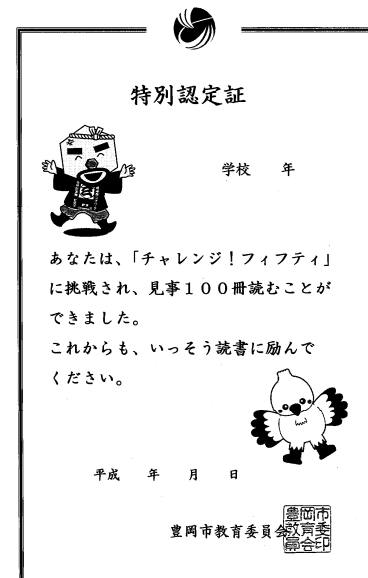 特別認定証
学校　　年
あなたは、「チャレンジ！フィフティ」
に挑戦され、見事１００冊読むことが
できました。
これからも、いっそう読書に励んで
ください。
平成　　年　　月　　日
豊岡市教育委員会
豊岡市教育委員会印